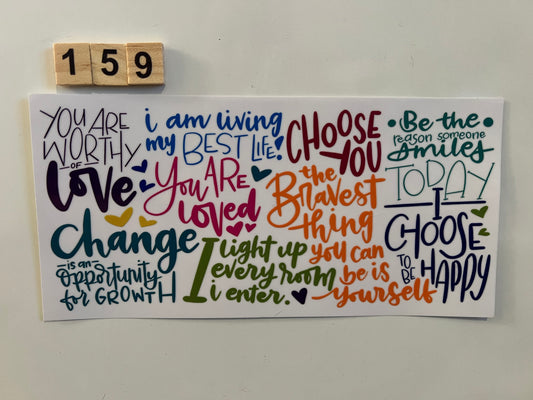 159
YOU ARE
WORTHY
OF
love
i am living
my BEST LIFE!
CHOOSE
YOU
• Be the •
reason someone
smiles
You ARE
loved
the
Bravest
thing
you can
be is
yourself
TODAY
I
CHOOSE
TO BE HAPPY
Change
is an
opportunity
for GROWTH
I light up
every room
i enter.